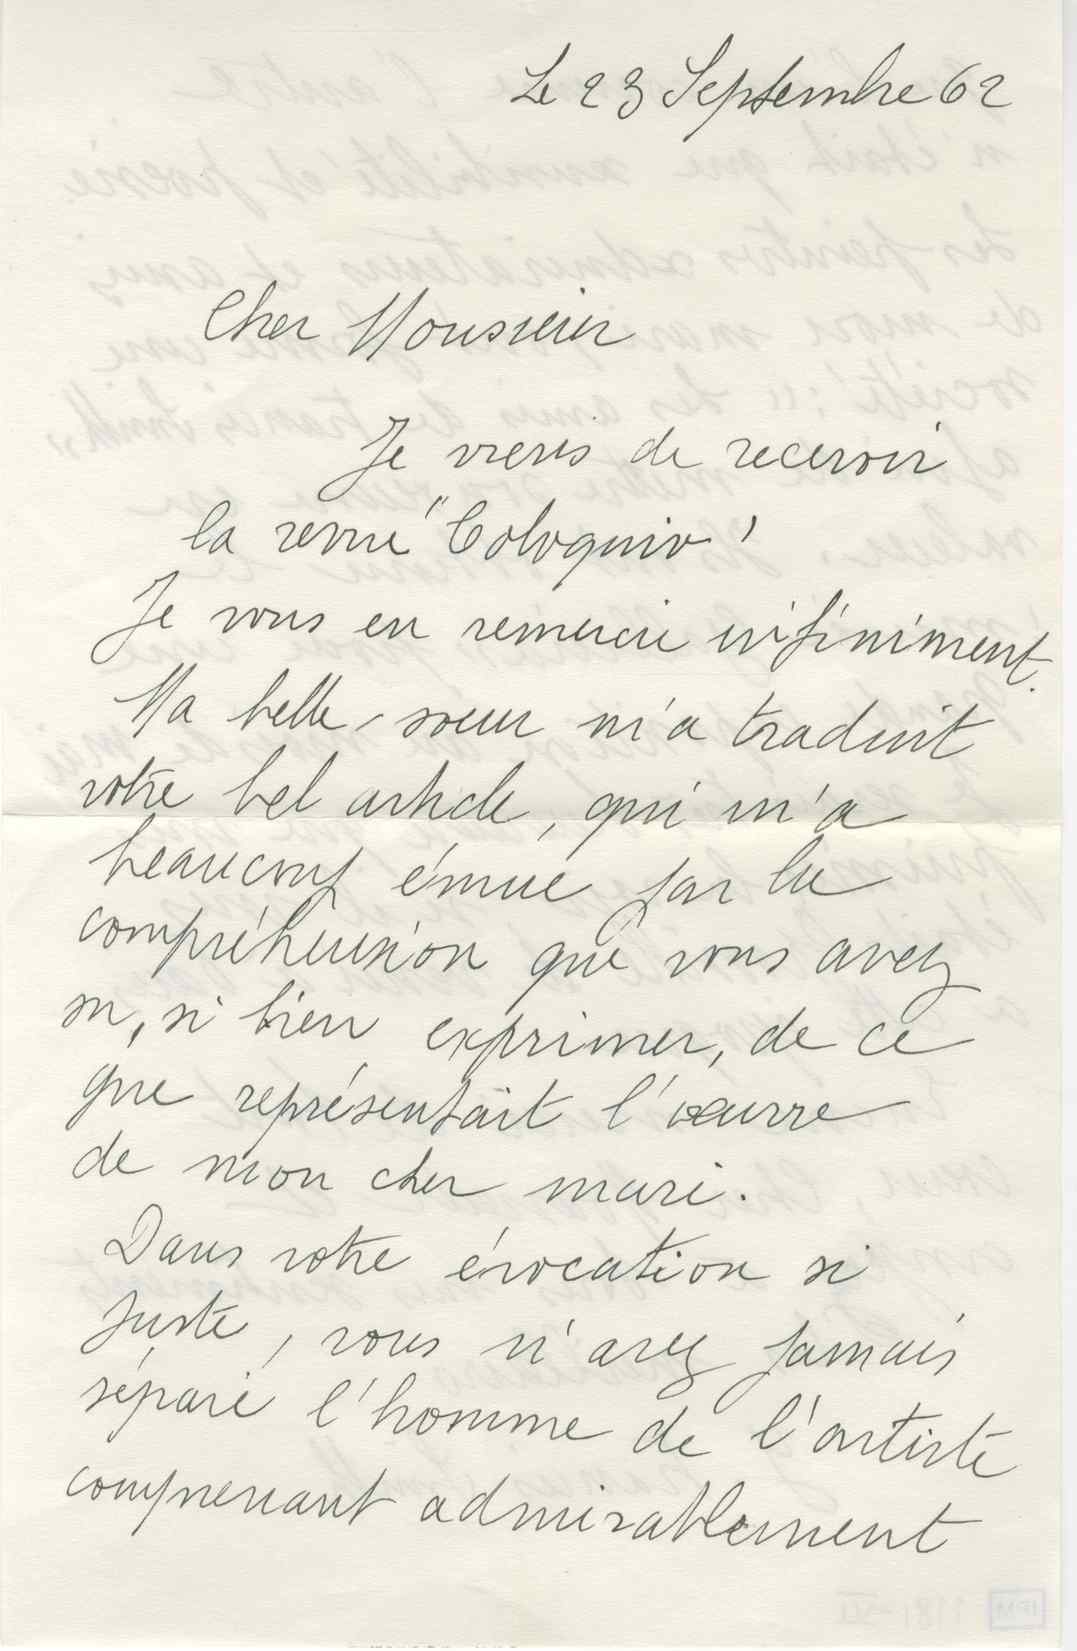 Le 23 Septembre 62
Cher Monsieur
Je viens de recevoir
la revue "Coloquio"
Je vous en remercie infiniment.
Ma belle-soeur m'a traduit
votre bel article, qui m'a
beaucoup émue par la
compréhension que vous avez
su, si bien exprimer, de ce
que représentait l'œuvre
de mon cher mari.
Dans votre évocation si
juste, vous n'avez jamais
séparé l'homme de l'artiste
comprenant admirablement